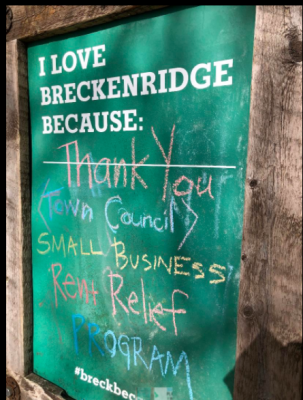 I LOVE
BRECKENRIDGE
BECAUSE:
Thank You
(Town Council)
SMALL BUSINESS
Rent Relief
PROGRAM